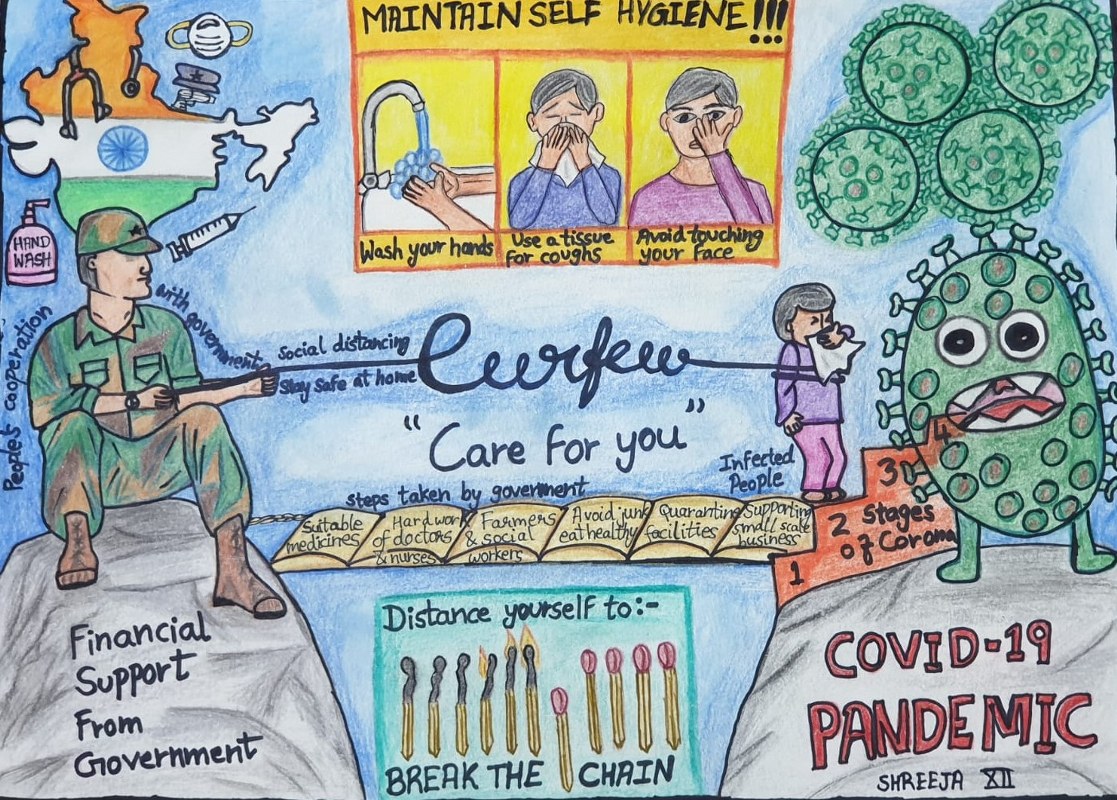 MAINTAIN SELF HYGIENE!!!
Wash your hands
Use a tissue
for coughs
Avoid touching
your Face
HAND
WASH
People's cooperation
with government
Social distancing
Stay safe at home
Curfew
"Care For you"
Infected
People
steps taken by government
Suitable
medicines
Hard work
of doctors
& nurses
Farmers
& social
workers
Avoid junk
eat healthy
Quarantine
facilities
Supporting
small scale
business
1
2
3
4
Stages
of Corona
Financial
Support
From
Government
Distance yourself to:-
BREAK THE CHAIN
COVID-19
PANDEMIC
SHREEJA XII